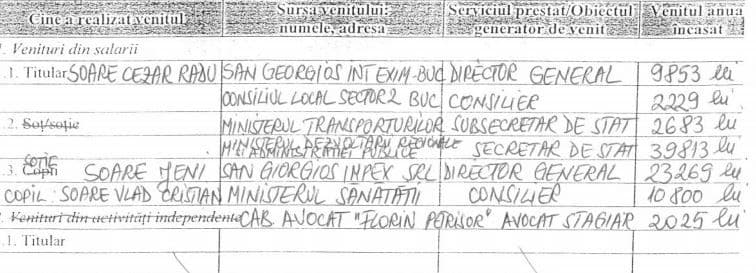 Cine a realizat venitul Sursa venitului: numele, adresa Serviciul prestat/Obiectul generator de venit Venitul anual încasat
1. Venituri din salarii
.1. Titular SOARE CEZAR RADU SAN GEORGIOS INT EXIM-BUC DIRECTOR GENERAL 9853 lei
CONSILIUL LOCAL SECTOR 2 BUC CONSILIER 2229 lei
.2. Soț/soție MINISTERUL TRANSPORTURILOR SUBSECRETAR DE STAT 2683 lei
MINISTERUL DEZVOLTARII REGIONALE SI ADMINISTRATIEI PUBLICE SECRETAR DE STAT 39813 lei
.3. Copii soție SOARE JENI SAN GIORGIOS IMPEX SRL DIRECTOR GENERAL 23269 lei
COPIL: SOARE VLAD CRISTIAN MINISTERUL SANATATII CONSILIER 10800 lei
. Venituri din activități independente CAB. AVOCAT "FLORIN PETRISOR" AVOCAT STAGIAR 2025 lei
.1. Titular